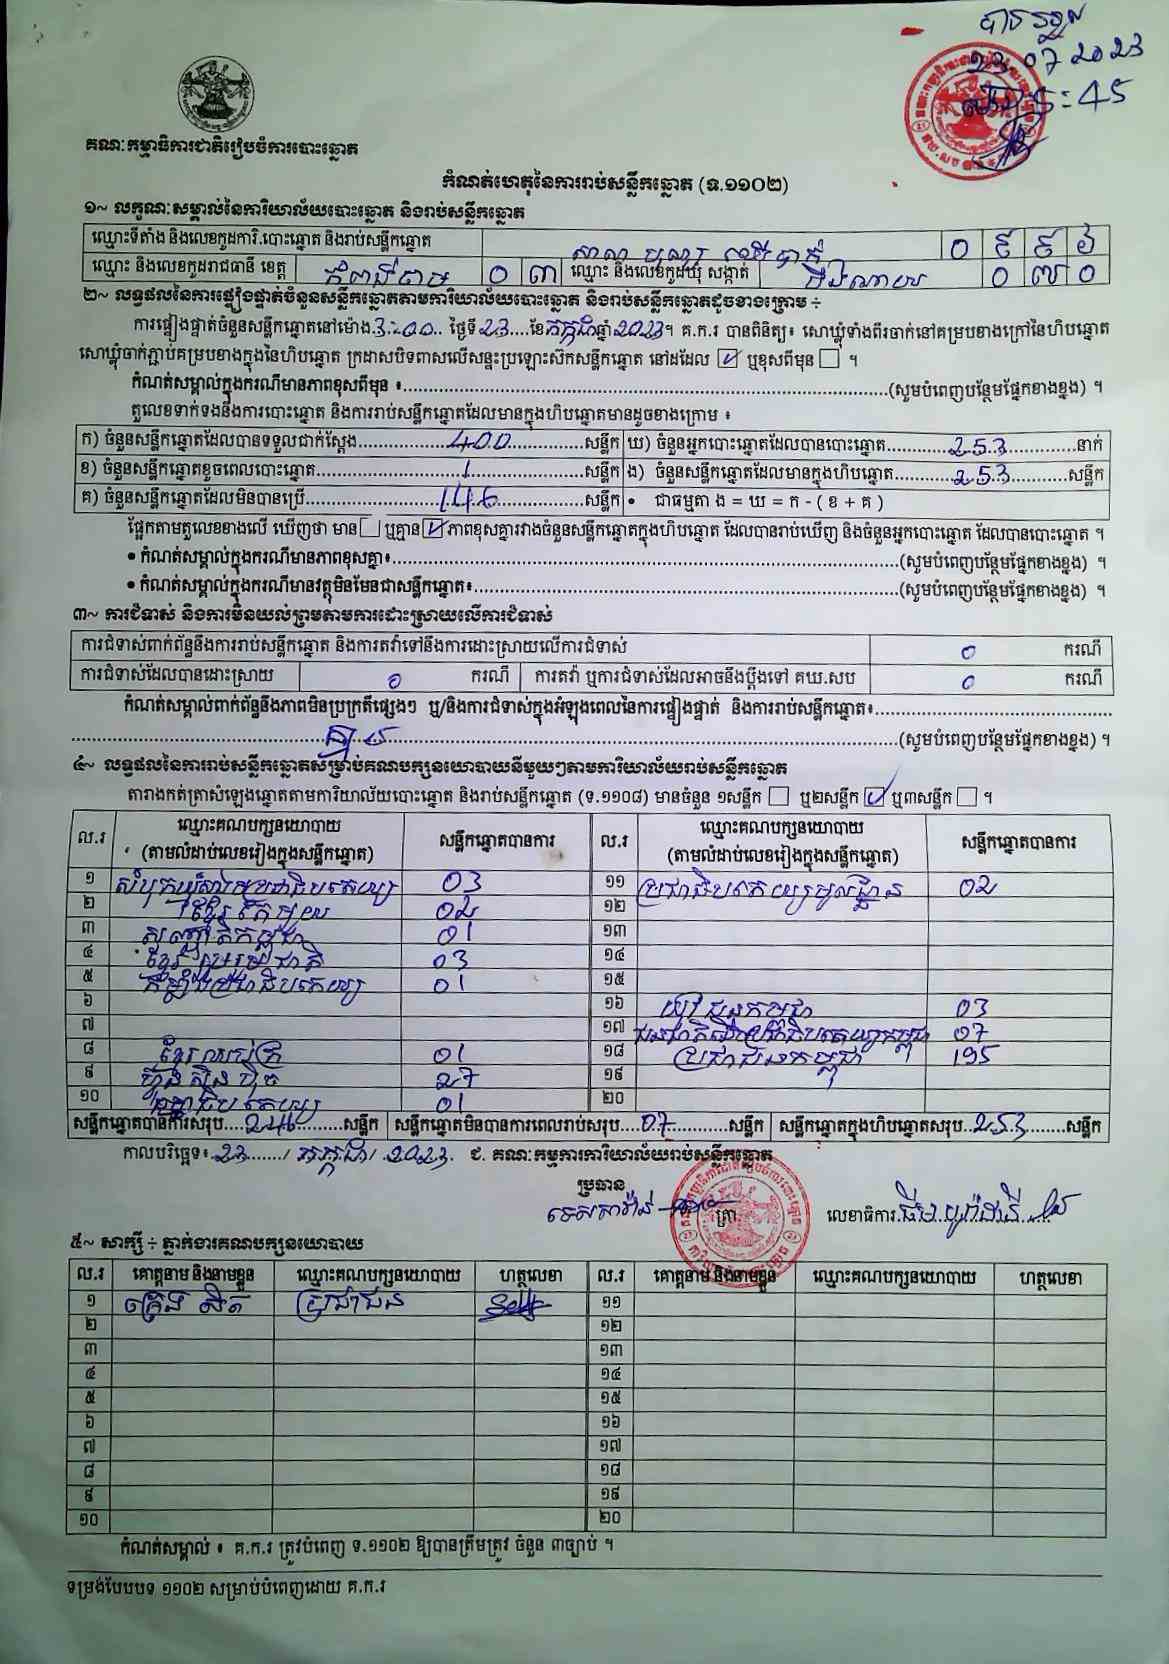 បានទទួល
23 07 2023
ម៉ោង 5:45
គណៈកម្មាធិការជាតិរៀបចំការបោះឆ្នោត
កំណត់ហេតុនៃការរាប់សន្លឹកឆ្នោត (ទ.១១០២)
១~ លក្ខណៈសម្គាល់នៃការិយាល័យបោះឆ្នោត និងរាប់សន្លឹកឆ្នោត
ឈ្មោះទីតាំង និងលេខកូដការិ.បោះឆ្នោត និងរាប់សន្លឹកឆ្នោត ០ ៩ ៩ ៦
ឈ្មោះ និងលេខកូដរាជធានី ខេត្ត កំពង់ចាម ០ ៣ ឈ្មោះ និងលេខកូដឃុំ សង្កាត់ ០ ៧ ០
២~ លទ្ធផលនៃការផ្ទៀងផ្ទាត់ចំនួនសន្លឹកឆ្នោតតាមការិយាល័យបោះឆ្នោត និងរាប់សន្លឹកឆ្នោតដូចខាងក្រោម ÷
ការផ្ទៀងផ្ទាត់ចំនួនសន្លឹកឆ្នោតនៅម៉ោង 3:00 ថ្ងៃទី 23 ខែ កក្កដា ឆ្នាំ 2023 ។ គ.ក.រ បានពិនិត្យ៖ សោឃ្លុំទាំងពីរចាក់នៅគម្របខាងក្រៅនៃហិបឆ្នោត
សោឃ្លុំចាក់ភ្ជាប់គម្របខាងក្នុងនៃហិបឆ្នោត ក្រដាសបិទពាសលើសន្ទះប្រឡោះស៊កសន្លឹកឆ្នោត នៅដដែល ☑ ឬខុសពីមុន ☐ ។
កំណត់សម្គាល់ក្នុងករណីមានភាពខុសពីមុន ៖ (សូមបំពេញបន្ថែមផ្នែកខាងខ្នង) ។
តួលេខទាក់ទងនឹងការបោះឆ្នោត និងការរាប់សន្លឹកឆ្នោតដែលមានក្នុងហិបឆ្នោតមានដូចខាងក្រោម ៖
ក) ចំនួនសន្លឹកឆ្នោតដែលបានទទួលជាក់ស្តែង 400 សន្លឹក ឃ) ចំនួនអ្នកបោះឆ្នោតដែលបានបោះឆ្នោត 253 នាក់
ខ) ចំនួនសន្លឹកឆ្នោតខូចពេលបោះឆ្នោត 1 សន្លឹក ង) ចំនួនសន្លឹកឆ្នោតដែលមានក្នុងហិបឆ្នោត 253 សន្លឹក
គ) ចំនួនសន្លឹកឆ្នោតដែលមិនបានប្រើ 146 សន្លឹក • ជាធម្មតា ង = ឃ = ក - ( ខ + គ )
ផ្អែកតាមតួលេខខាងលើ ឃើញថា មាន ☐ ឬគ្មាន ☑ ភាពខុសគ្នារវាងចំនួនសន្លឹកឆ្នោតក្នុងហិបឆ្នោត ដែលបានរាប់ឃើញ និងចំនួនអ្នកបោះឆ្នោត ដែលបានបោះឆ្នោត ។
• កំណត់សម្គាល់ក្នុងករណីមានភាពខុសគ្នា៖ (សូមបំពេញបន្ថែមផ្នែកខាងខ្នង) ។
• កំណត់សម្គាល់ក្នុងករណីមានវត្ថុមិនមែនជាសន្លឹកឆ្នោត៖ (សូមបំពេញបន្ថែមផ្នែកខាងខ្នង) ។
៣~ ការជំទាស់ និងការមិនយល់ព្រមតាមការដោះស្រាយលើការជំទាស់
ការជំទាស់ពាក់ព័ន្ធនឹងការរាប់សន្លឹកឆ្នោត និងការតវ៉ាទៅនឹងការដោះស្រាយលើការជំទាស់ 0 ករណី
ការជំទាស់ដែលបានដោះស្រាយ 0 ករណី ការតវ៉ា ឬការជំទាស់ដែលអាចនឹងប្តឹងទៅ គឃ.សប 0 ករណី
កំណត់សម្គាល់ពាក់ព័ន្ធនឹងភាពមិនប្រក្រតីផ្សេងៗ ឬ/និងការជំទាស់ក្នុងអំឡុងពេលនៃការផ្ទៀងផ្ទាត់ និងការរាប់សន្លឹកឆ្នោត៖
គ្មាន (សូមបំពេញបន្ថែមផ្នែកខាងខ្នង) ។
៤~ លទ្ធផលនៃការរាប់សន្លឹកឆ្នោតសម្រាប់គណបក្សនយោបាយនីមួយៗតាមការិយាល័យរាប់សន្លឹកឆ្នោត
តារាងកត់ត្រាសំឡេងឆ្នោតតាមការិយាល័យបោះឆ្នោត និងរាប់សន្លឹកឆ្នោត (ទ.១១០៨) មានចំនួន ១សន្លឹក ☐ ឬ២សន្លឹក ☑ ឬ៣សន្លឹក ☐ ។
ល.រ ឈ្មោះគណបក្សនយោបាយ (តាមលំដាប់លេខរៀងក្នុងសន្លឹកឆ្នោត) សន្លឹកឆ្នោតបានការ ល.រ ឈ្មោះគណបក្សនយោបាយ (តាមលំដាប់លេខរៀងក្នុងសន្លឹកឆ្នោត) សន្លឹកឆ្នោតបានការ
១ សំបុកឃ្មុំសង្គមប្រជាធិបតេយ្យ 03 ១១ ប្រជាធិបតេយ្យមូលដ្ឋាន 02
២ ខ្មែររួបរួម 02 ១២
៣ សញ្ជាតិកម្ពុជា 01 ១៣
៤ ខ្មែរ ជាតិ 03 ១៤
៥ កម្លាំងប្រជាធិបតេយ្យ 01 ១៥
៦ ១៦ យុវជនកម្ពុជា 03
៧ ១៧ ជនជាតិដើមប្រជាធិបតេយ្យកម្ពុជា 07
៨ ខ្មែរអភិរក្ស 01 ១៨ ប្រជាជនកម្ពុជា 195
៩ ហ៊្វុនស៊ិនប៉ិច 27 ១៩
១០ ធម្មាធិបតេយ្យ 01 ២០
សន្លឹកឆ្នោតបានការសរុប 246 សន្លឹក សន្លឹកឆ្នោតមិនបានការពេលរាប់សរុប 07 សន្លឹក សន្លឹកឆ្នោតក្នុងហិបឆ្នោតសរុប 253 សន្លឹក
កាលបរិច្ឆេទ៖ 23 / កក្កដា / 2023 ជ. គណៈកម្មការការិយាល័យរាប់សន្លឹកឆ្នោត
ប្រធាន
ត្រា លេខាធិការ
៥~ សាក្សី ÷ ភ្នាក់ងារគណបក្សនយោបាយ
ល.រ គោត្តនាម និងនាមខ្លួន ឈ្មោះគណបក្សនយោបាយ ហត្ថលេខា ល.រ គោត្តនាម និងនាមខ្លួន ឈ្មោះគណបក្សនយោបាយ ហត្ថលេខា
១ ប្រជាជន ១១
២ ១២
៣ ១៣
៤ ១៤
៥ ១៥
៦ ១៦
៧ ១៧
៨ ១៨
៩ ១៩
១០ ២០
កំណត់សម្គាល់ ៖ គ.ក.រ ត្រូវបំពេញ ទ.១១០២ ឱ្យបានត្រឹមត្រូវ ចំនួន ៣ច្បាប់ ។
ទម្រង់បែបបទ ១១០២ សម្រាប់បំពេញដោយ គ.ក.រ